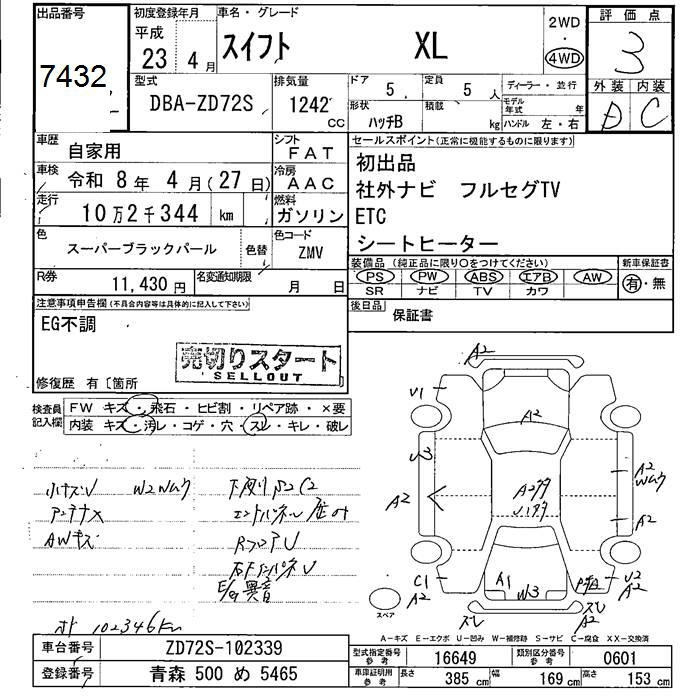 出品番号
7432
初度登録年月
平成
23年 4月
車名・グレード
スイフト XL
2WD
・
4WD
評価点
3
外装 内装
D C
型式
DBA-ZD72S
排気量
1242
CC
ドア
5
定員
5 人
形状
ハッチB
積載
kg
ディーラー・並行
モデル年式 年
ハンドル 左・右
車歴
自家用
シフト
FAT
車検
令和 8年 4月(27日)
冷房
AAC
走行
10万2千344 km
燃料
ガソリン
色
スーパーブラックパール
色替
色コード
ZMV
R券
11,430 円
名変通知期限
月 日
セールスポイント(正常に機能するものに限ります)
初出品
社外ナビ フルセグTV
ETC
シートヒーター
装備品 (純正品に限り〇をつけてください)
PS PW ABS エアB AW
SR ナビ TV カワ
新車保証書
有・無
後日品
保証書
注意事項申告欄(不具合内容等は具体的に記入して下さい)
EG不調
売切りスタート
SELLOUT
修復歴 有〔箇所
検査員
記入欄
FW キズ・飛石・ヒビ割・リペア跡・×要
内装 キズ・汚レ・コゲ・穴・スレ・キレ・破レ
小キズU W2Wムラ
アンテナX
AWキズ
下廻りS2C2
RフロアU
E/g異音
オド 102346Km
A2
V1
A2
U3
A2
A2
Wムラ
A2
C1
A2
A1
W3
U2
A2
スレ
スレ
A2
スペア
A-キズ E-エクボ U-凹み W-補修跡 S-サビ C-腐食 XX-交換済
車台番号
ZD72S-102339
登録番号
青森 500 め 5465
型式指定番号
参考
16649
類別区分番号
参考
0601
車庫証明用
参考
長さ
385 cm
幅
169 cm
高さ
153 cm